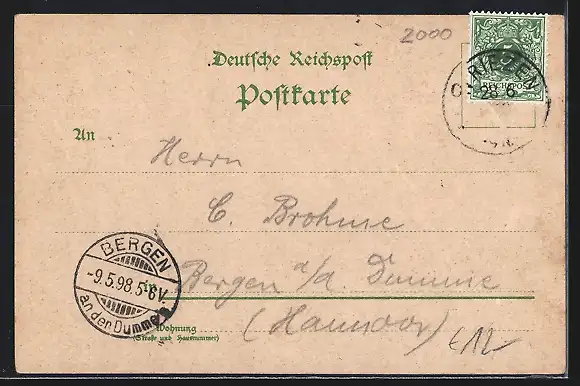 2000
Deutsche Reichspost
Postkarte
An
Herrn
C. Brohme
in Bergen a/d. Dumme
(Hannover)
Wohnung
(Straße und Hausnummer)
BERGEN
-9.5.98.5-6V.
an der Dumme
5
RIE
E12-